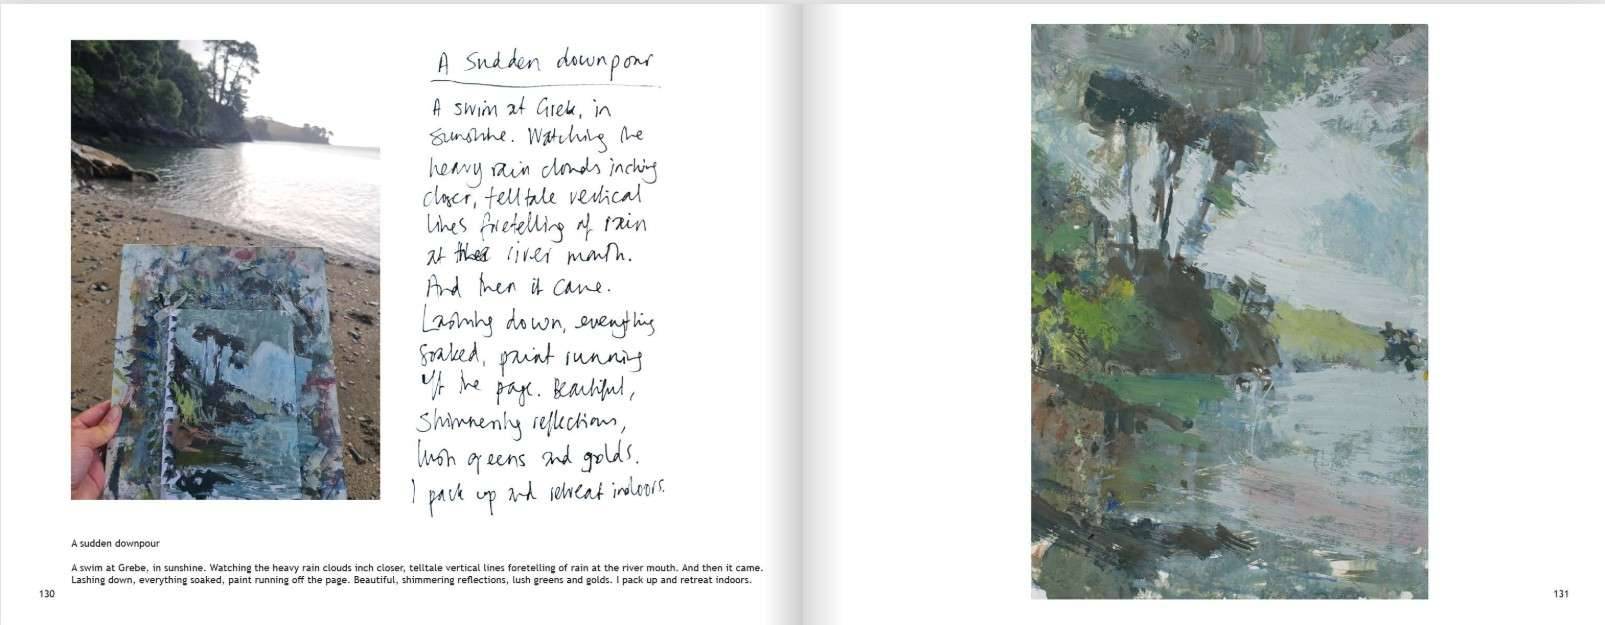 A Sudden downpour
A swim at Grebe, in
sunshine. Watching the
heavy rain clouds inching
closer, telltale vertical
lines foretelling of rain
at the river mouth.
And then it came.
Lashing down, everything
soaked, paint running
off the page. Beautiful,
shimmering reflections,
lush greens and golds.
I pack up and retreat indoors.
A sudden downpour
A swim at Grebe, in sunshine. Watching the heavy rain clouds inch closer, telltale vertical lines foretelling of rain at the river mouth. And then it came.
Lashing down, everything soaked, paint running off the page. Beautiful, shimmering reflections, lush greens and golds. I pack up and retreat indoors.
130
131